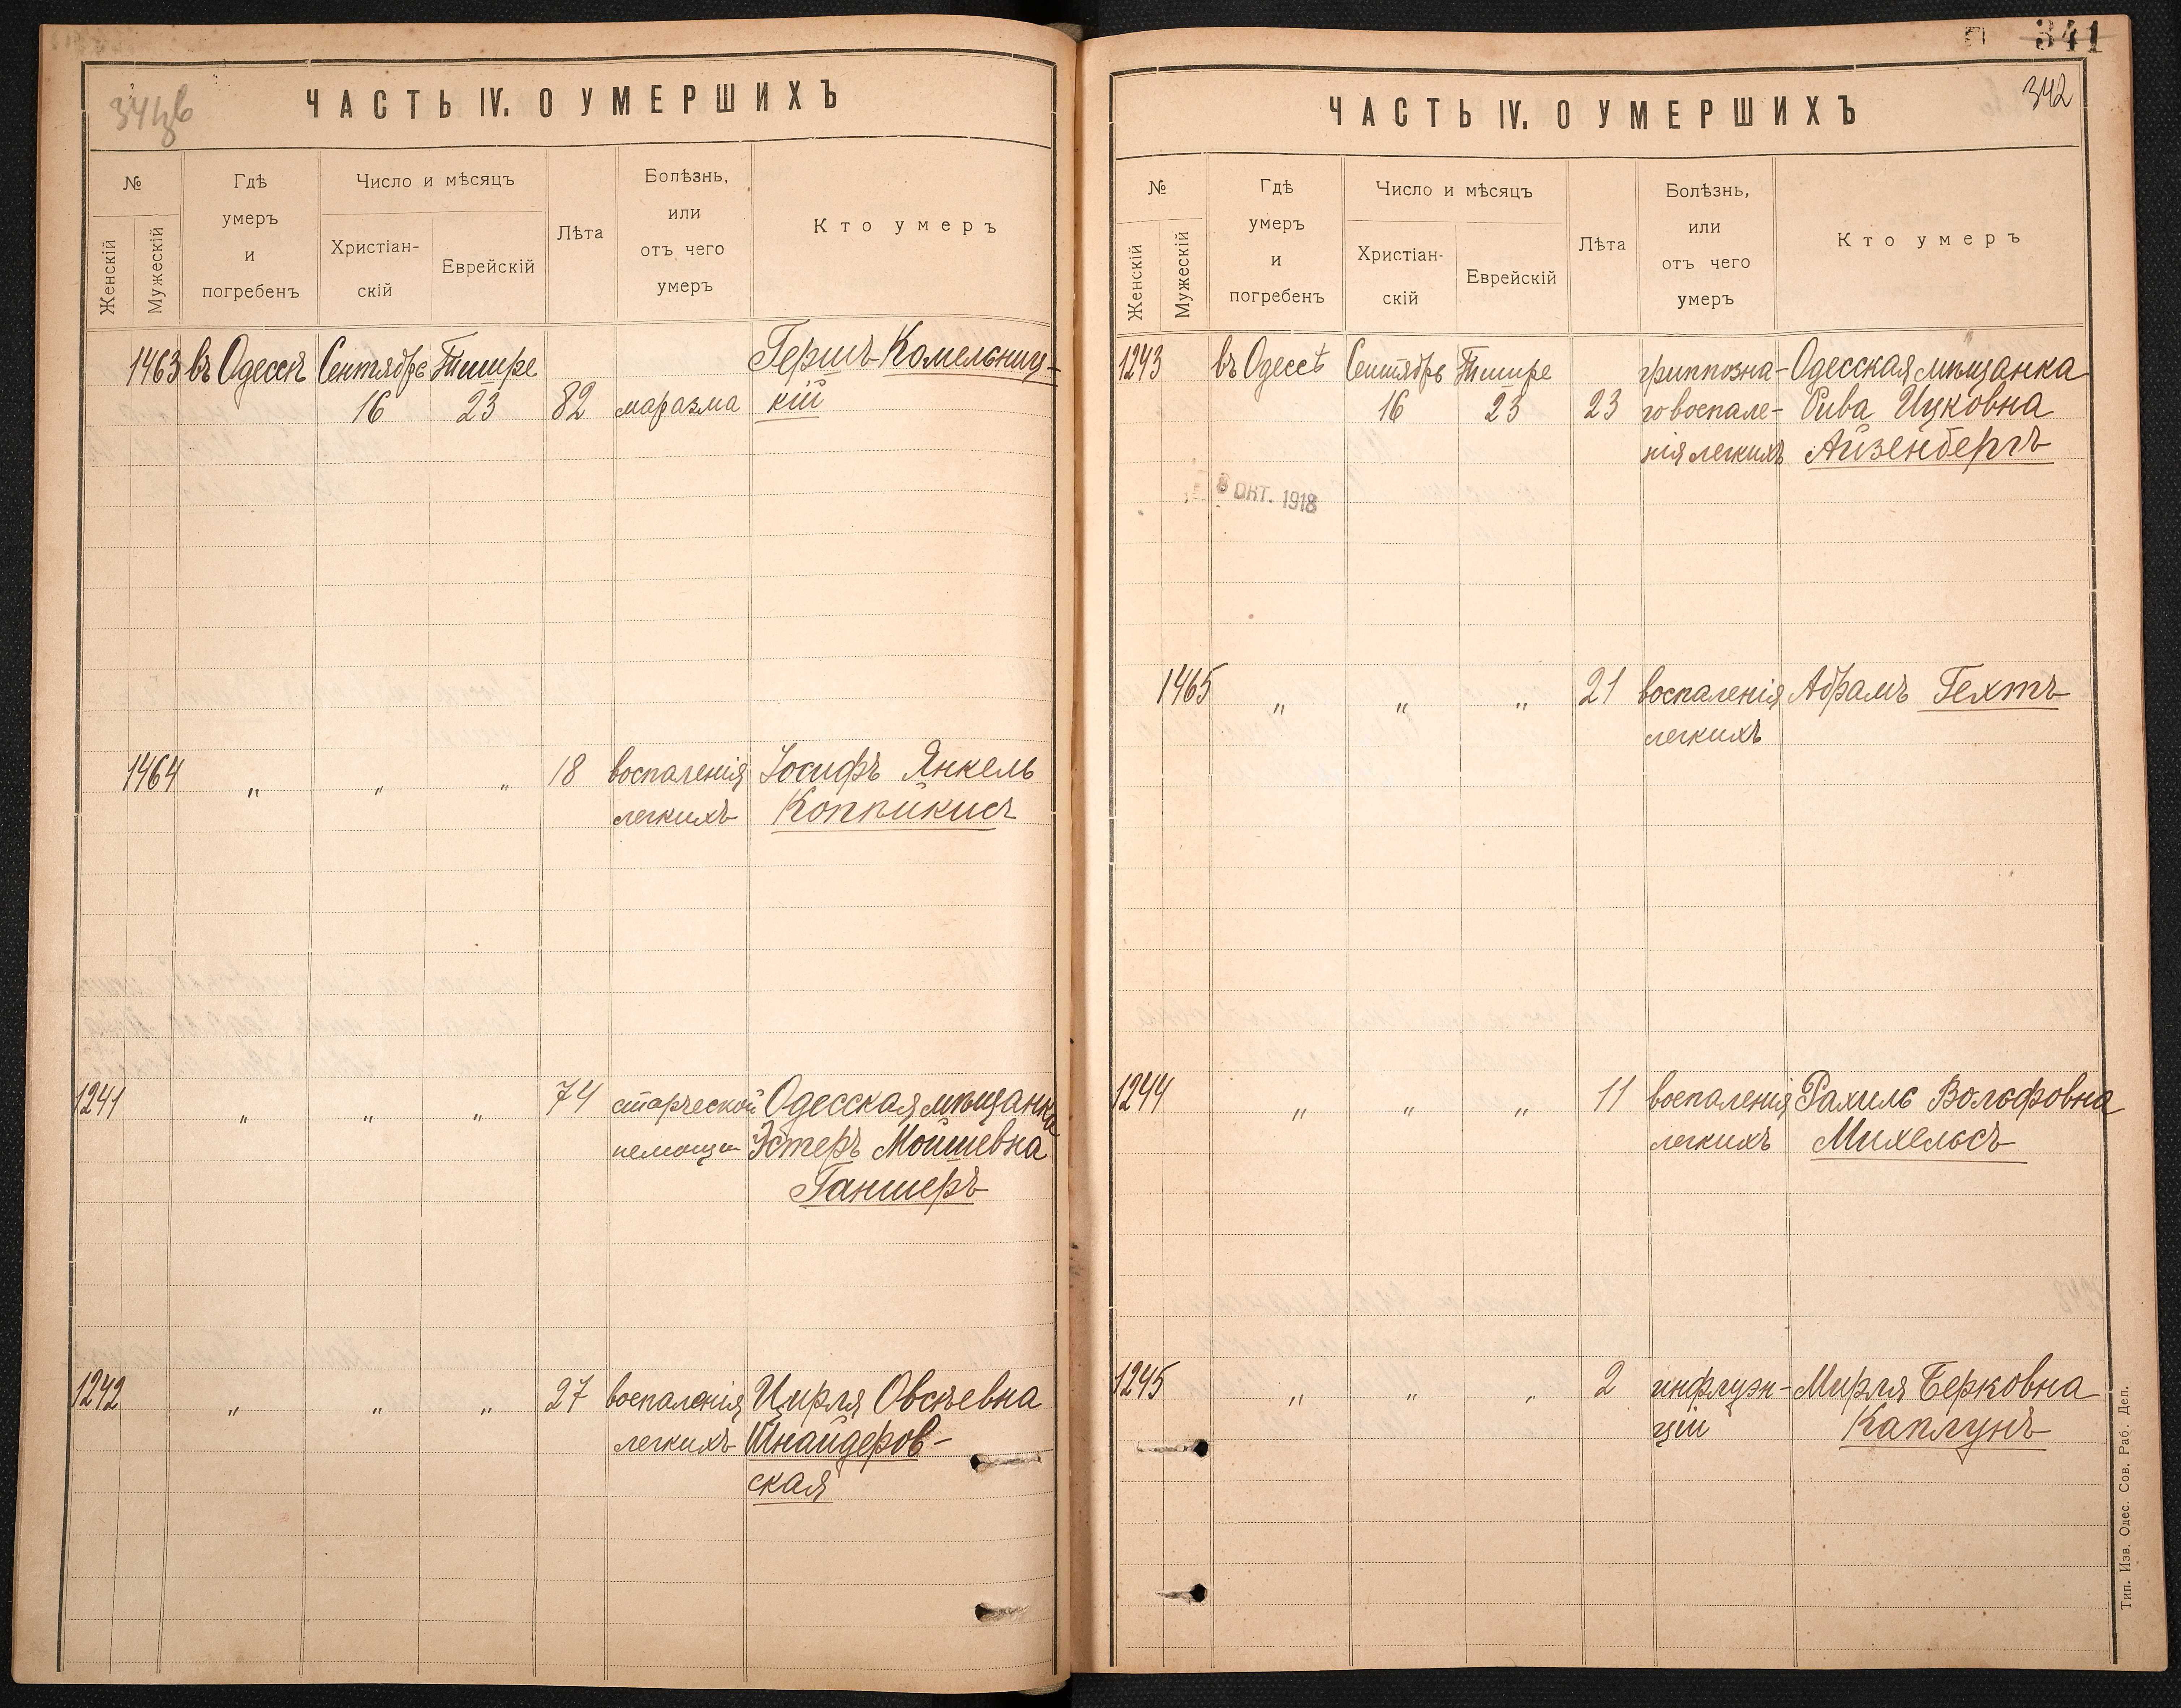 341об
ЧАСТЬ IV. О УМЕРШИХЪ
№
Женскій
Мужескій
Гдѣ
умеръ
и
погребенъ
Число и мѣсяцъ
Христіан-
скій
Еврейскій
Лѣта
Болѣзнь,
или
отъ чего
умеръ
Кто умеръ
1463 въ Одессѣ Сентябрь Тишре Гершъ Комельниц-
16 23 82 маразма кій
1464 " " " 18 воспаленія Іосифъ Янкель
легкихъ Коппикисъ
1241 " " " 74 старческой Одесская мѣщанка
немощи Эстеръ Мойшевна
Ганшеръ
1242 " " " 27 воспаленія Цирля Овсѣевна
легкихъ Шнайдеров-
ская
341
342
ЧАСТЬ IV. О УМЕРШИХЪ
№
Женскій
Мужескій
Гдѣ
умеръ
и
погребенъ
Число и мѣсяцъ
Христіан-
скій
Еврейскій
Лѣта
Болѣзнь,
или
отъ чего
умеръ
Кто умеръ
1243 въ Одессѣ Сентябрь Тишре гриппозна- Одесская мѣщанка
16 23 23 го воспале- Рива Ицковна
нія легкихъ Айзенбергъ
8 ОКТ. 1918
1465 " " " 21 воспаленія Абрамъ Гехтъ
легкихъ
1244 " " " 11 воспаленія Рахиль Вольфовна
легкихъ Михельсъ
1245 " " " 2 инфлуэн- Мирля Берковна
ціи Каплунъ
Тип. Изв. Одес. Сов. Раб. Деп.